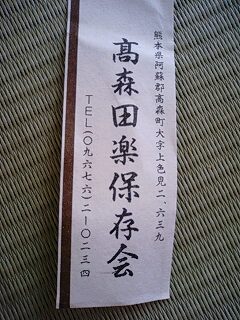 熊本県阿蘇郡高森町大字上色見二、六三九
髙森田楽保存会
TEL(〇九六七六)二―〇二三四